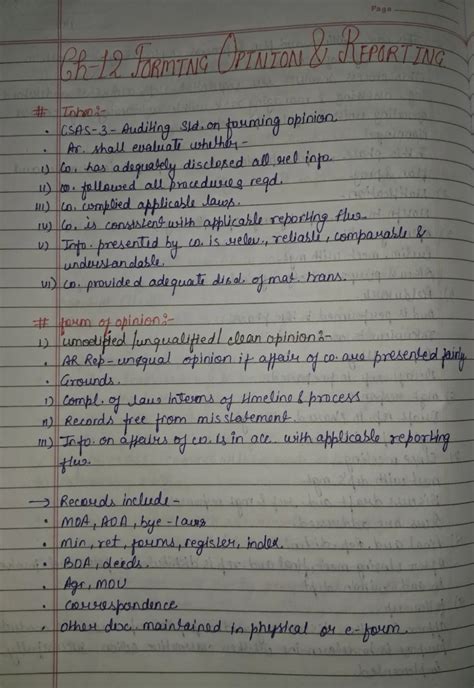 Page
Ch-12 FORMING OPINION & REPORTING
# Intro:-
• CSAS-3- Auditing Std. on forming opinion
• Ar. shall evaluate whether-
i) Co. has adequately disclosed all rel info.
ii) co. followed all procedures reqd.
iii) Co. complied applicable laws.
iv) Co. is consistent with applicable reporting f/w.
v) Info. presented by co. is relev., reliable, comparable &
understandable.
vi) Co. provided adequate discl. of mat. trans.
# form of opinion:-
i) unmodified/unqualified/clean opinion:-
• AR Rep- unqual opinion if affair of co. are presented fairly
• Grounds.
i) Compl. of law in terms of timeline & process
ii) Records free from misstatement.
iii) Info. on affairs of co. is in acc. with applicable reporting
f/w.
→ Records include-
• MOA, AOA, bye-laws
• Min, ret, forms, register, index.
• BOA, deeds.
• Agr, MOU
• Correspondence
• other doc. maintained in physical or e-form.